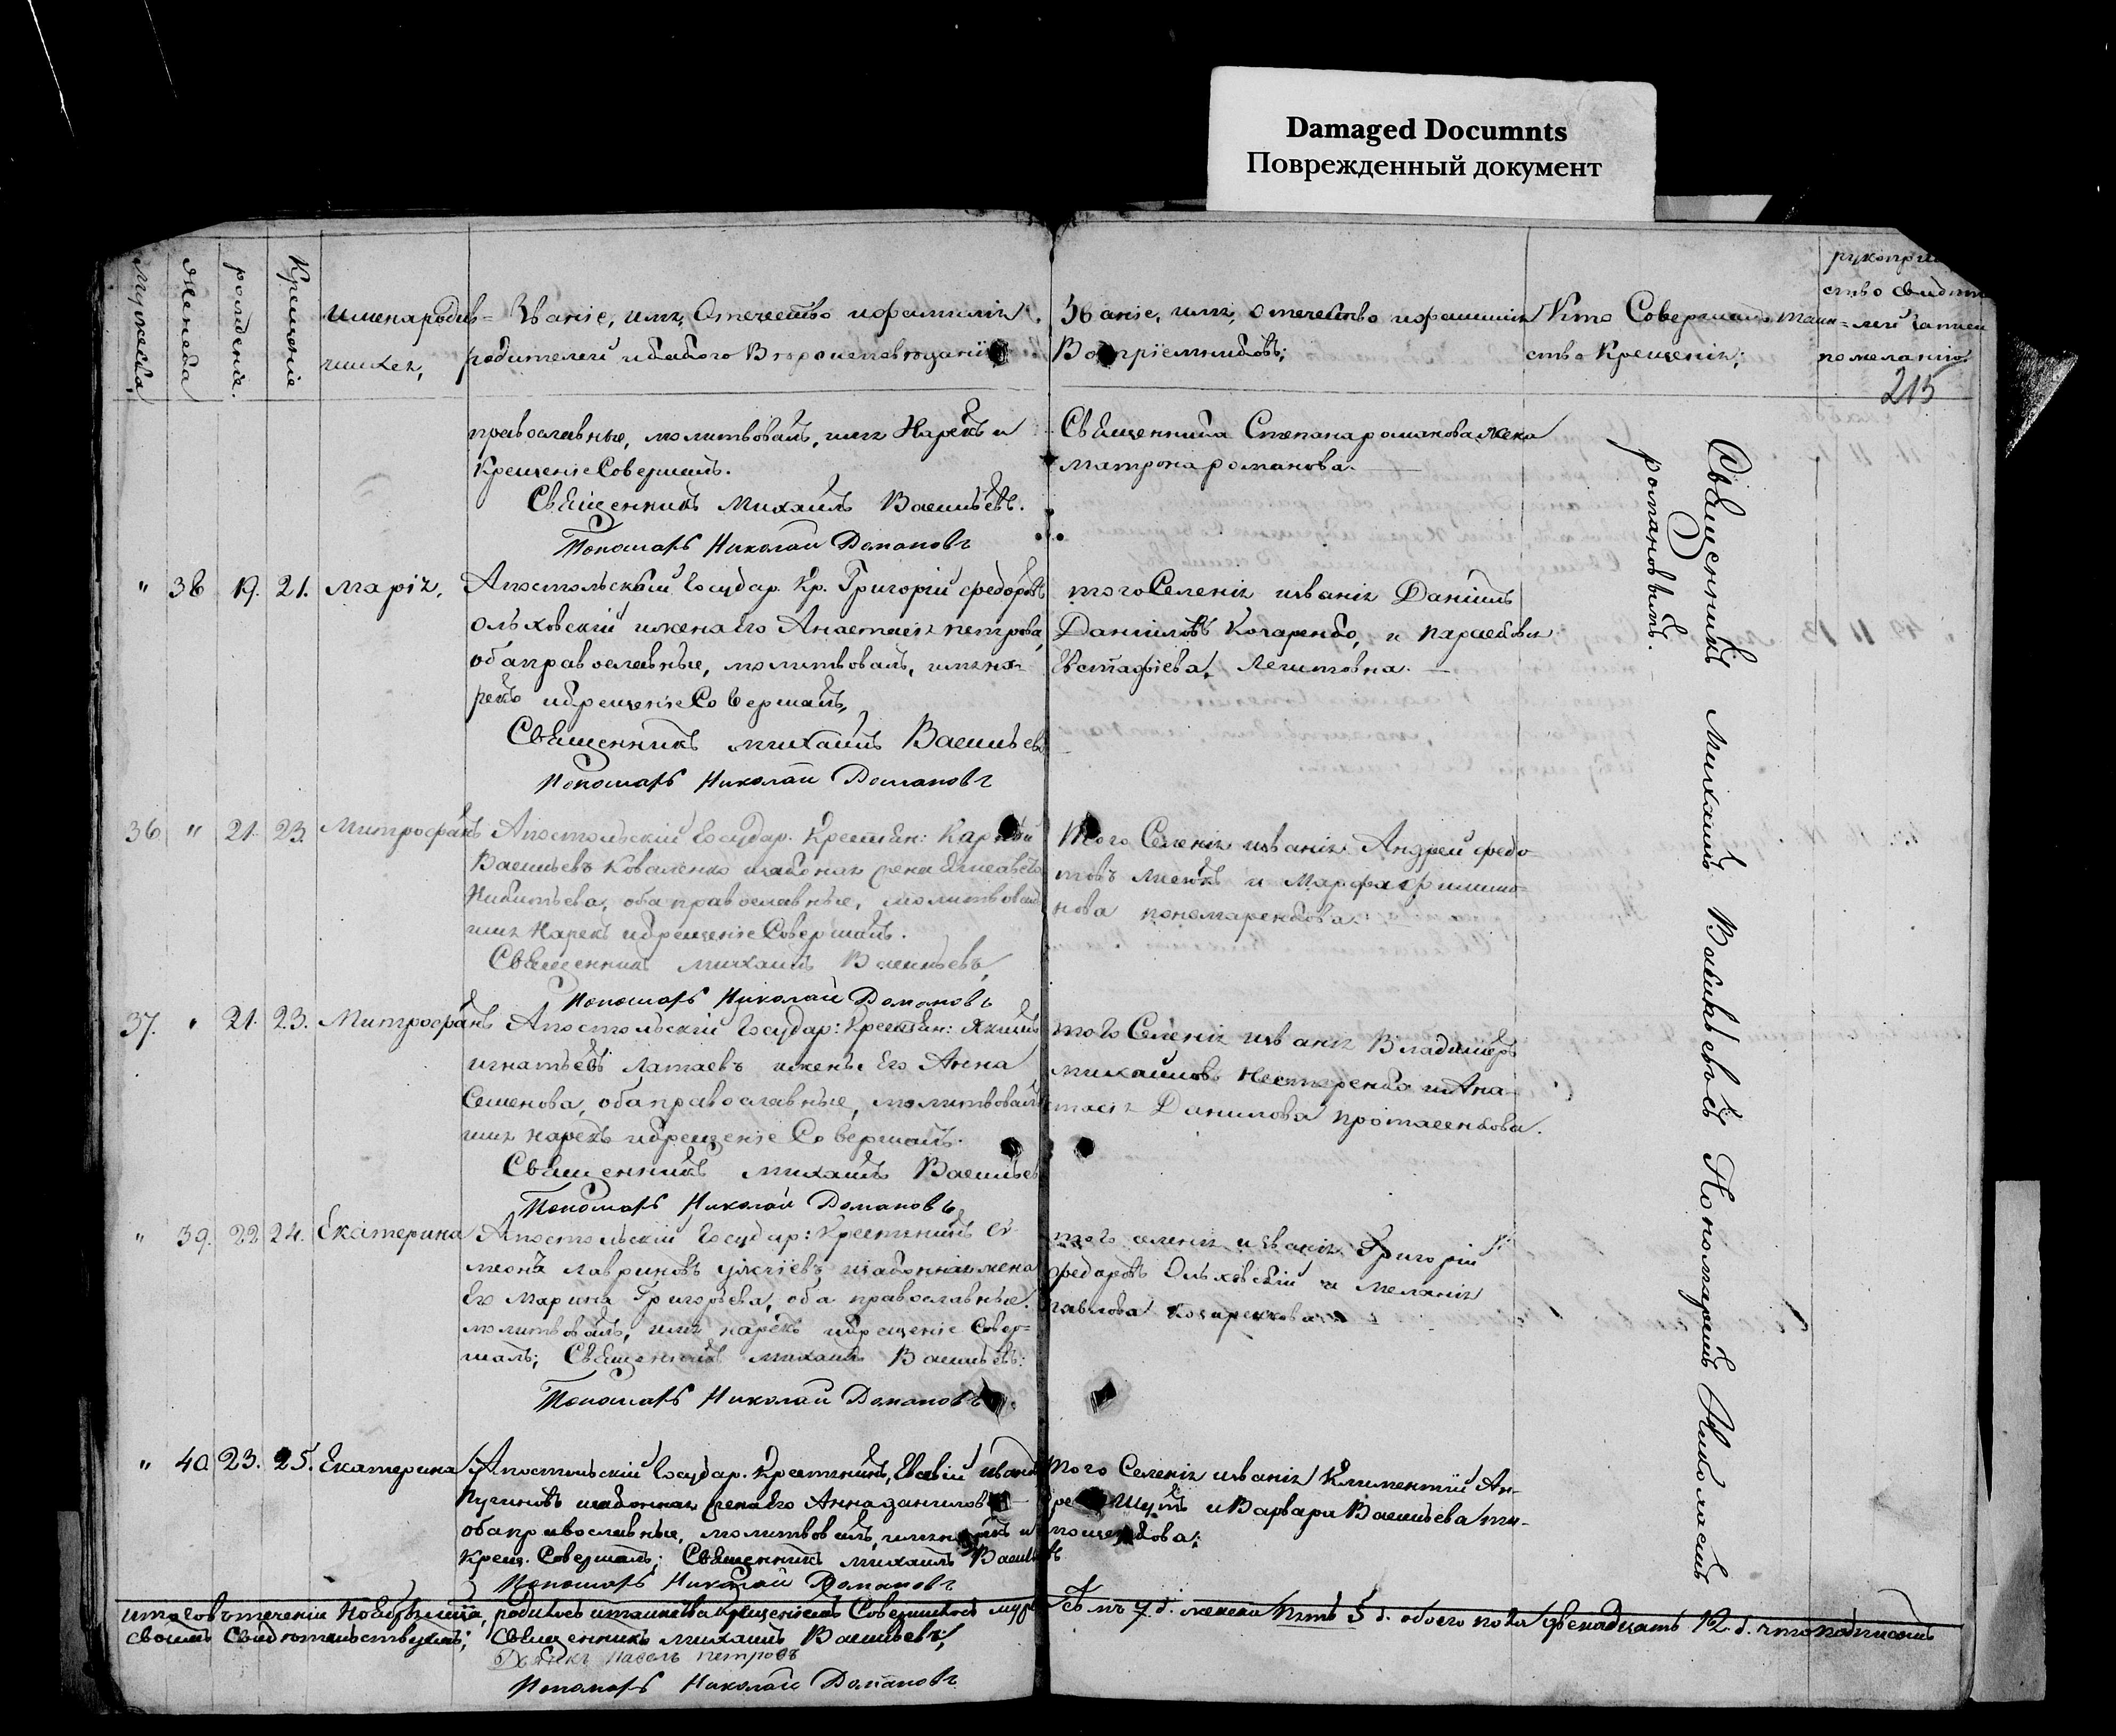 Damaged Documnts
Поврежденный документ
Мужеска
Женска
рождение.
Крещение
имена родив=
шихся,
Званіе, имя, Отечество и фамилія
родителей и какого Вероисповѣданія
Званіе, имя, отечество и фамилія
Воспріемниковъ;
Кто Совершалъ таин=
ство Крещенія;
рукопри
ство свидѣте
лей записи
по желанію
215
православные, молитвовалъ, имя Нарекъ и
Крещеніе Совершалъ.
Священникъ Михаилъ Васильевъ.
Пономарь Николай Романовъ
Священника Степана романова жена
матрона романова.
Священникъ Михаилъ Васильевъ съ Пономаремъ Николаемъ
романовымъ.
" 38 19. 21. Марія,
Апостольскій Государ. Кр. Григорій федоровъ
ольховскій и жена его Анастасія петрова,
оба православные, молитвовалъ, имя на=
рекъ и крещеніе Совершалъ,
Священникъ михаилъ Васильевъ
Пономарь Николай Романовъ
того Селенія и званія Даніилъ
Даніиловъ Кочаренко, и парасковія
Евстафіева,
36 " 21. 23. Митрофанъ
Апостольскій Государ. Крестьян:
Васильевъ Коваленко и законная жена Елисавета
Никитьева, оба православные, молитвовалъ
имя Нарекъ и крещеніе Совершалъ.
Священникъ михаилъ Васильевъ,
Пономарь Николай Романовъ
Того Селенія и званія Андрей федо=
товъ и Марфа филимо=
нова пономаренкова.
37. " 21. 23. Митрофанъ
Апостольскій Государ: Крестьян: Якимъ
игнатьевъ Латаевъ и жена Его Анна
Семенова, оба православные, молитвовалъ
имя нарекъ и крещеніе Совершалъ.
Священникъ михаилъ Васильевъ
Пономарь Николай Романовъ
того Селенія и званія Владимеръ
михайловъ Нестеренко и Ана=
стасія Данилова протасенкова.
" 39. 22 24. Екатерина
Апостольскій Государ: Крестьянинъ Си
меонъ лавриновъ и законная жена
Его Марина Григорьева, оба православные.
молитвовалъ, имя нарекъ и крещеніе Совер=
шалъ; Священникъ михаилъ Васильевъ:
Пономарь Николай Романовъ
того селенія и званія Григорій
федоровъ Ольховскій и меланія
павлова
" 40. 23. 25. Екатерина
Апостольскій Государ. Крестьянинъ, Евсевій ивановъ
и законная жена Его Анна данилов
оба православные, молитвовалъ, имя нарекъ и
Крещ. Совершалъ; Священникъ михаилъ Васильевъ
Пономарь Николай Романовъ
Того Селенія и званія Климентій Ан=
Шутъ и Варвара Васильева ти=
мощенкова;
итого въ теченіи Ноября мца, родилось и таинства Крещенія Совершилось муж съ мъ 7 д. женска пять 5 д. обоего пола двенадцать 12 д. что подписомъ
своимъ свидѣтельствуемъ; Священникъ михаилъ Васильевъ,
Дьячекъ павелъ петровъ
Пономарь Николай Романовъ